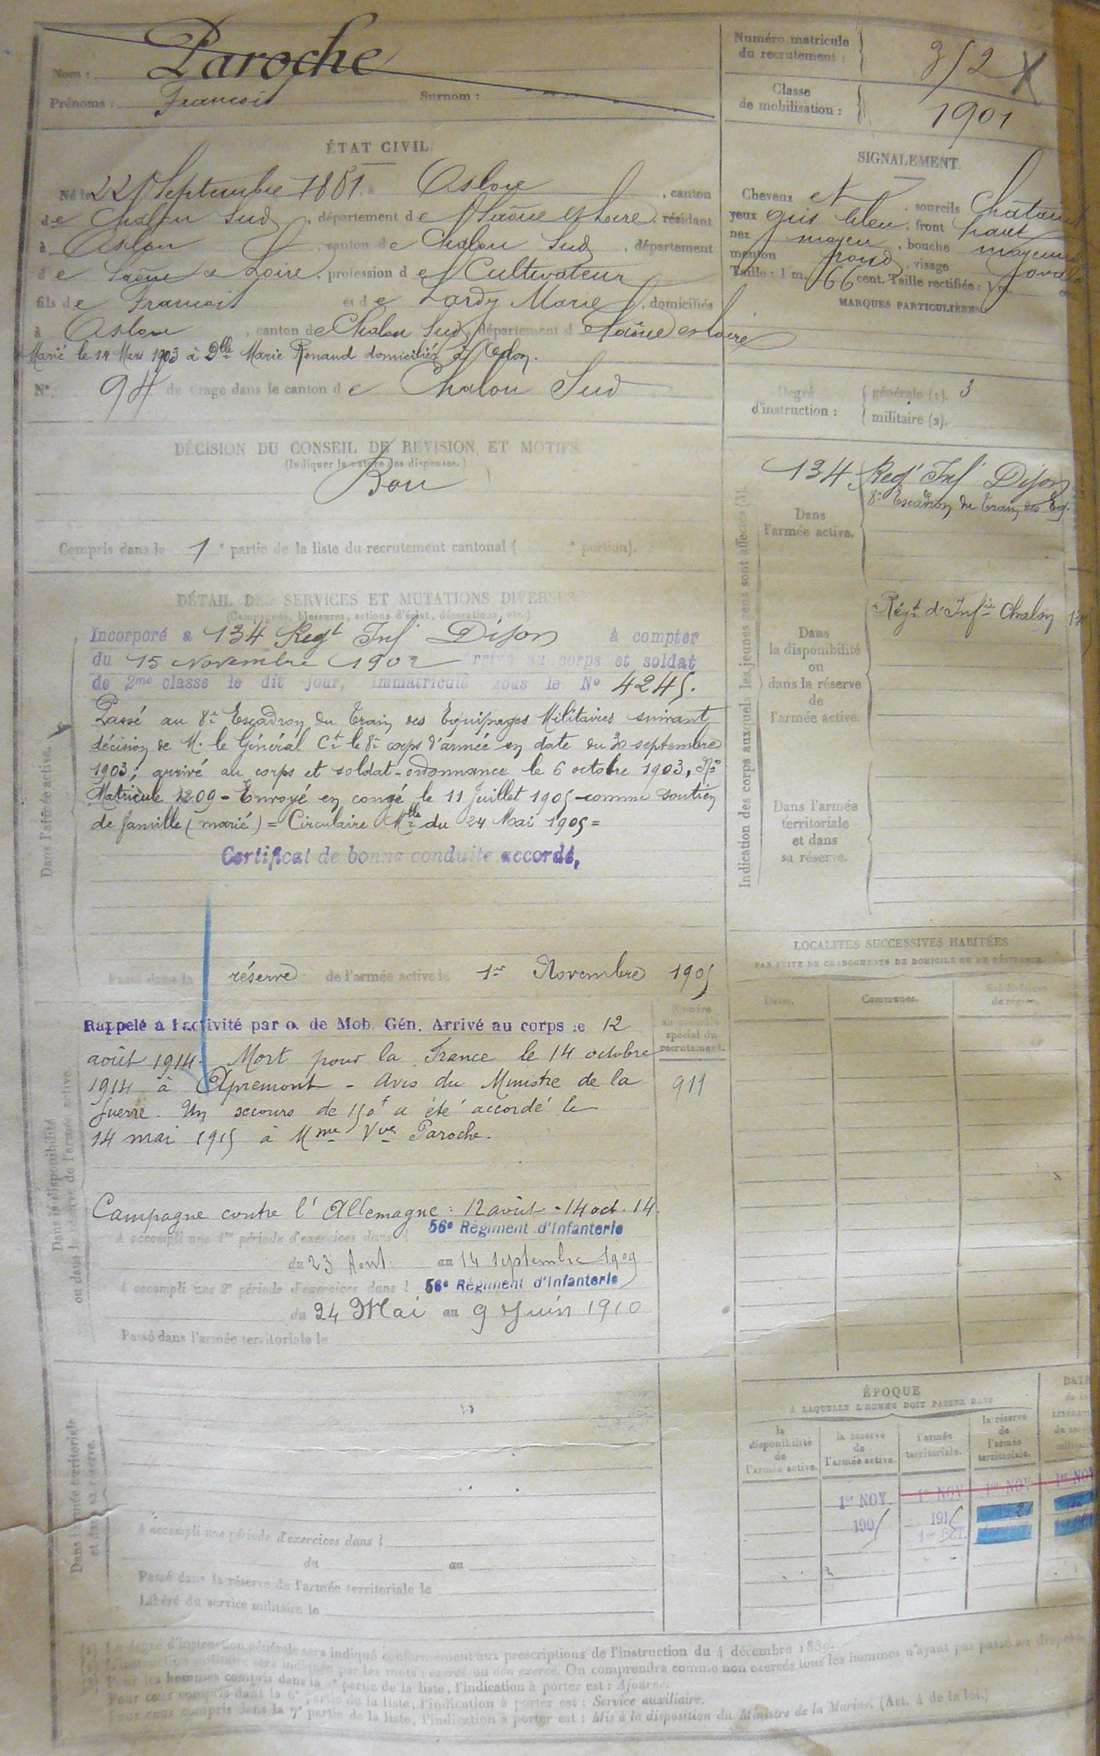 Nom : Paroche
Prénoms : François Surnom :
Numéro matricule
du recrutement : 352
Classe
de mobilisation : 1901
ÉTAT CIVIL.
Né le 22 Septembre 1881, à Oslon, canton
de Chalon Sud, département de Saône et Loire, résidant
à Oslon, canton de Chalon Sud, département
de Saône et Loire, profession de Cultivateur
fils de François et de Lardy Marie, domiciliés
à Oslon, canton de Chalon Sud, département de Saône et Loire
Marié le 14 Mars 1903 à Dlle Marie Renaud domiciliée à Oslon.
N° 94 de tirage dans le canton de Chalon Sud
SIGNALEMENT.
Cheveux et, sourcils châtains
yeux gris bleu, front haut
nez moyen, bouche moyenne
menton rond, visage ovale
Taille : 1 m. 66 cent. Taille rectifiée : 1 m. cent.
MARQUES PARTICULIÈRES
Degré
d'instruction :
générale (1). 3
militaire (2).
DÉCISION DU CONSEIL DE RÉVISION ET MOTIFS
(Indiquer la nature des dispenses.)
Bon
Compris dans la 1e partie de la liste du recrutement cantonal ( e portion).
DÉTAIL DES SERVICES ET MUTATIONS DIVERSES
(Campagnes, blessures, actions d'éclat, décorations, etc.)
Dans l'armée active.
Incorporé a 134 Regt Inf Dijon à compter
du 15 Novembre 1902 arrivé au corps et soldat
de 2me classe le dit jour, immatriculé sous le No 4245.
Passé au 8e Escadron du Train des Equipages Militaires suivant
décision de M. le Général Ct le 8e corps d'armée en date du 30 septembre
1903, arrivé au corps et soldat-ordonnance le 6 octobre 1903, No
Matricule 1209 - Envoyé en congé le 11 Juillet 1905 comme soutien
de famille (marié) = Circulaire Mlle du 24 Mai 1905 =
Certificat de bonne conduite accordé,
Passé dans la réserve de l'armée active le 1er Novembre 1905
Dans la disponibilité
ou dans la réserve de l'armée active.
Rappelé à l'activité par o. de Mob. Gén. Arrivé au corps le 12
août 1914. Mort pour la France le 14 octobre
1914 à Apremont - avis du Ministre de la
Guerre. Un secours de 150f a été accordé le
14 mai 1915 à Mme Vve Paroche.
Numéro
au contrôle
spécial du
recrutement.
911
Campagne contre l'Allemagne : 12 août - 14 oct. 14.
A accompli une 1re période d'exercices dans l 56e Régiment d'Infanterie
du 23 Août au 14 septembre 1909
A accompli une 2e période d'exercices dans l 56e Régiment d'Infanterie
du 24 Mai au 9 Juin 1910
Passé dans l'armée territoriale le
Dans l'armée territoriale
et dans sa réserve.
A accompli une période d'exercices dans l
du au
Passé dans la réserve de l'armée territoriale le
Libéré du service militaire le
Indication des corps auxquels les jeunes gens sont affectés (3).
Dans
l'armée active.
134 Regt Inf Dijon
8e Escadron du Train des Eq.
Dans
la disponibilité
ou
dans la réserve
de
l'armée active.
Régt d'Infie Chalon
Dans l'armée
territoriale
et dans
sa réserve.
LOCALITÉS SUCCESSIVES HABITÉES
PAR SUITE DE CHANGEMENTS DE DOMICILE OU DE RÉSIDENCE
Dates.
Communes.
Subdivisions
de région.
ÉPOQUE
A LAQUELLE L'HOMME DOIT PASSER DANS
la
disponibilité
de
l'armée active.
la réserve
de
l'armée active.
l'armée
territoriale.
la réserve
de
l'armée
territoriale.
1er NOV. 1er NOV 1er NOV 1er NOV
1905 1915
1er OCT.
(1) Le degré d'instruction générale sera indiqué conformément aux prescriptions de l'instruction du 4 décembre 1889.